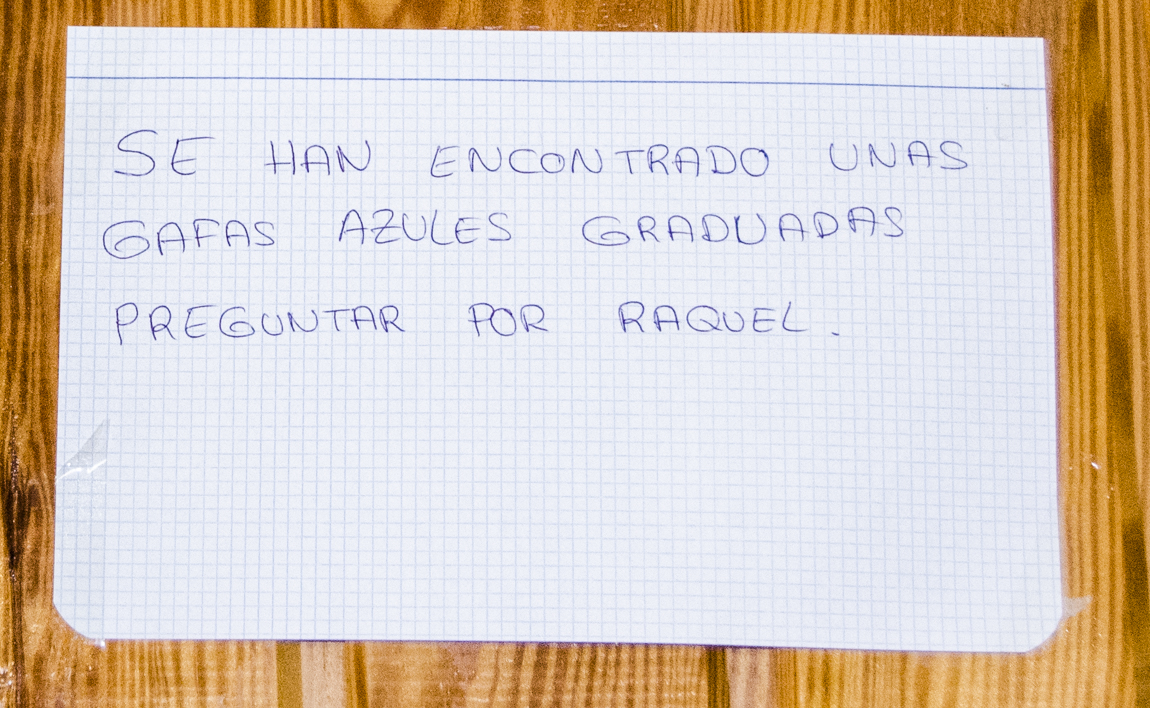 SE HAN ENCONTRADO UNAS
GAFAS AZULES GRADUADAS
PREGUNTAR POR RAQUEL.